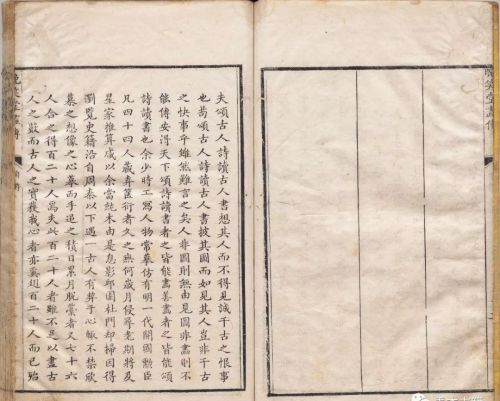 晚笑堂畫傳
夫頌古人詩讀古人書想其人而不得見誠千古之恨事
也茍頌古人詩讀古人書披其圖而如見其人豈非千古
之快事乎雖然難言之矣人非圖則無由見圖非畫則不
能傳安得天下頌詩讀書者之皆能畫善畫者之皆能頌
詩讀書也余少時工寫人物常摹仿有明一代開國勲臣
凡四十四人藏弆篋衍者久之無何歲月侵尋耄期將及
星家推算歲余當純木由是息影園杜門却掃因得
瀏覽史籍沿自周秦以下遇一古人有契于心輒不禁欣
慕之想像之心摹而手追之積日累月脫藁者又七十六
人合之得百二十人焉夫此百二十人者雖不足以盡古
人之數而古人之實獲我心者亦奚翅百二十人而已殆
晚笑堂畫傳